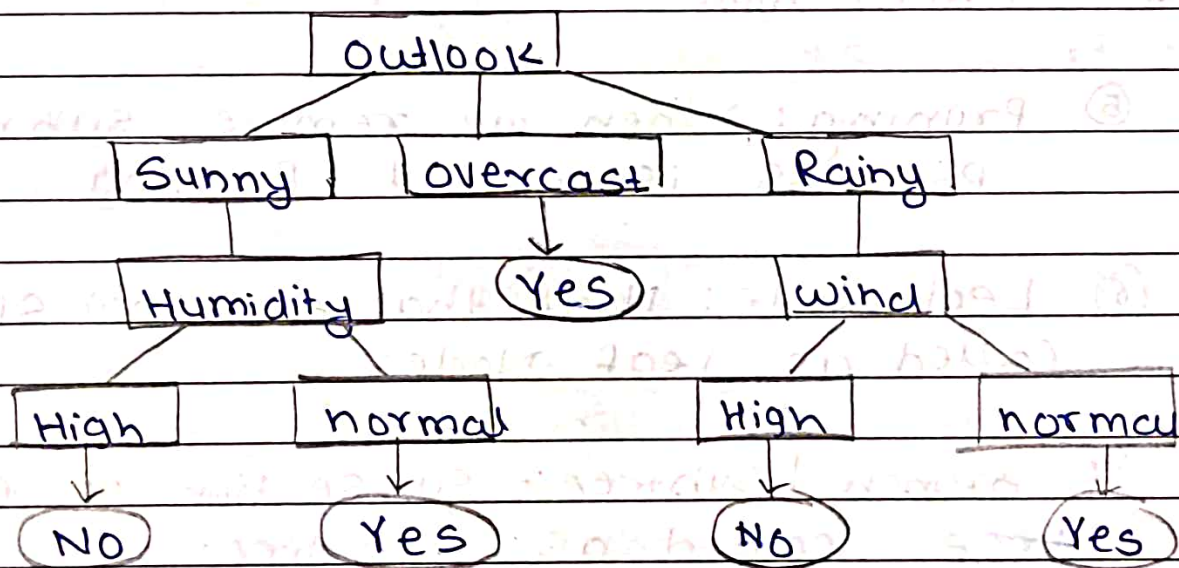 Outlook
Sunny overcast Rainy
Humidity Yes wind
High normal High normal
No Yes No Yes